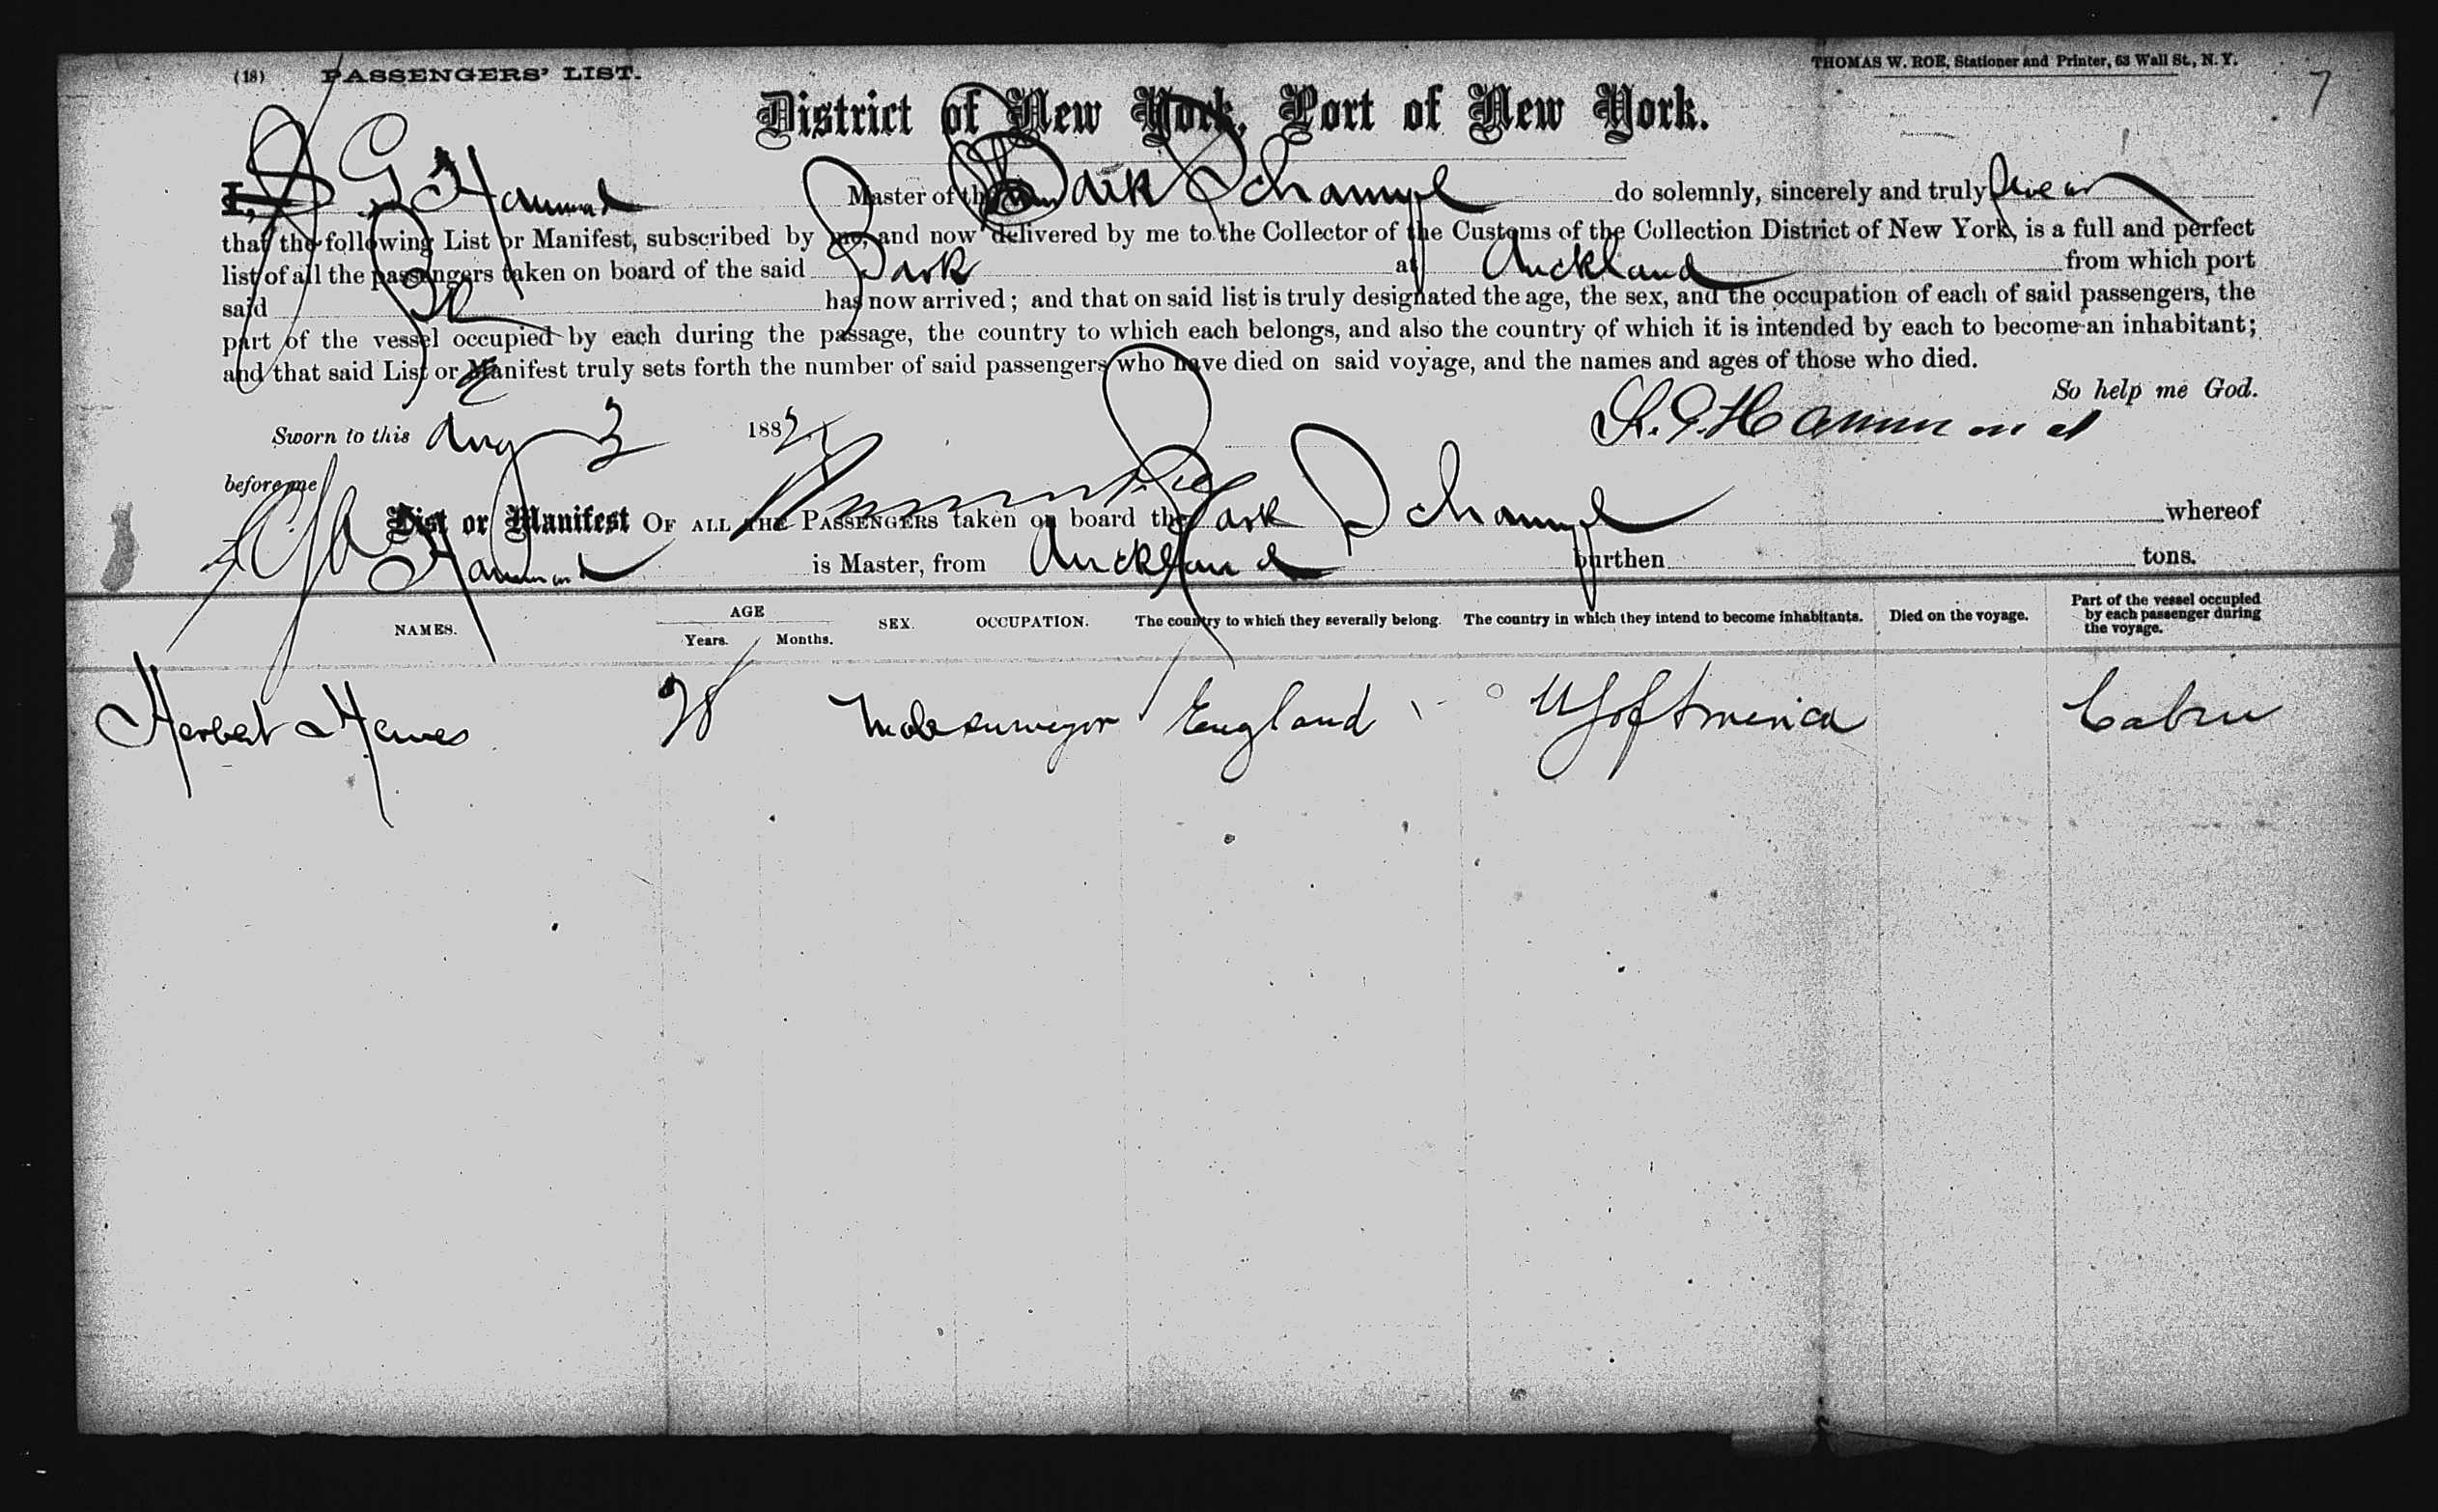 (18) PASSENGERS' LIST.
THOMAS W. ROE, Stationer and Printer, 63 Wall St., N.Y.
7
District of New York, Port of New York.
I, G Hammond Master of the Bark Schamyl do solemnly, sincerely and truly swear
that the following List or Manifest, subscribed by me, and now delivered by me to the Collector of the Customs of the Collection District of New York, is a full and perfect
list of all the passengers taken on board of the said Bark at Auckland from which port
said Bk has now arrived; and that on said list is truly designated the age, the sex, and the occupation of each of said passengers, the
part of the vessel occupied by each during the passage, the country to which each belongs, and also the country of which it is intended by each to become an inhabitant;
and that said List or Manifest truly sets forth the number of said passengers who have died on said voyage, and the names and ages of those who died.
So help me God.
Sworn to this Aug 3 1882
S. G. Hammond
before me
List or Manifest OF ALL THE PASSENGERS taken on board the Bark Schamyl whereof
Hammond is Master, from Auckland burthen tons.
NAMES.
AGE
Years. Months.
SEX.
OCCUPATION.
The country to which they severally belong.
The country in which they intend to become inhabitants.
Died on the voyage.
Part of the vessel occupied by each passenger during the voyage.
Herbert Hawes 28 Male surveyor England US of America Cabin